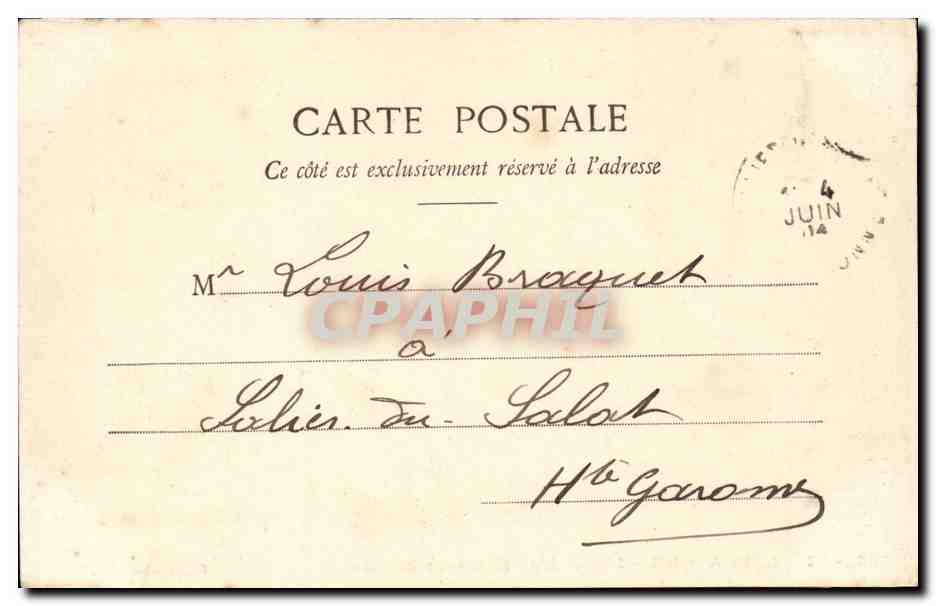 CARTE POSTALE
Ce côté est exclusivement réservé à l'adresse
4
JUIN
04
Mr Louis Braquet
CPAPHIL
à
Salies-du-Salat
Hte Garonne